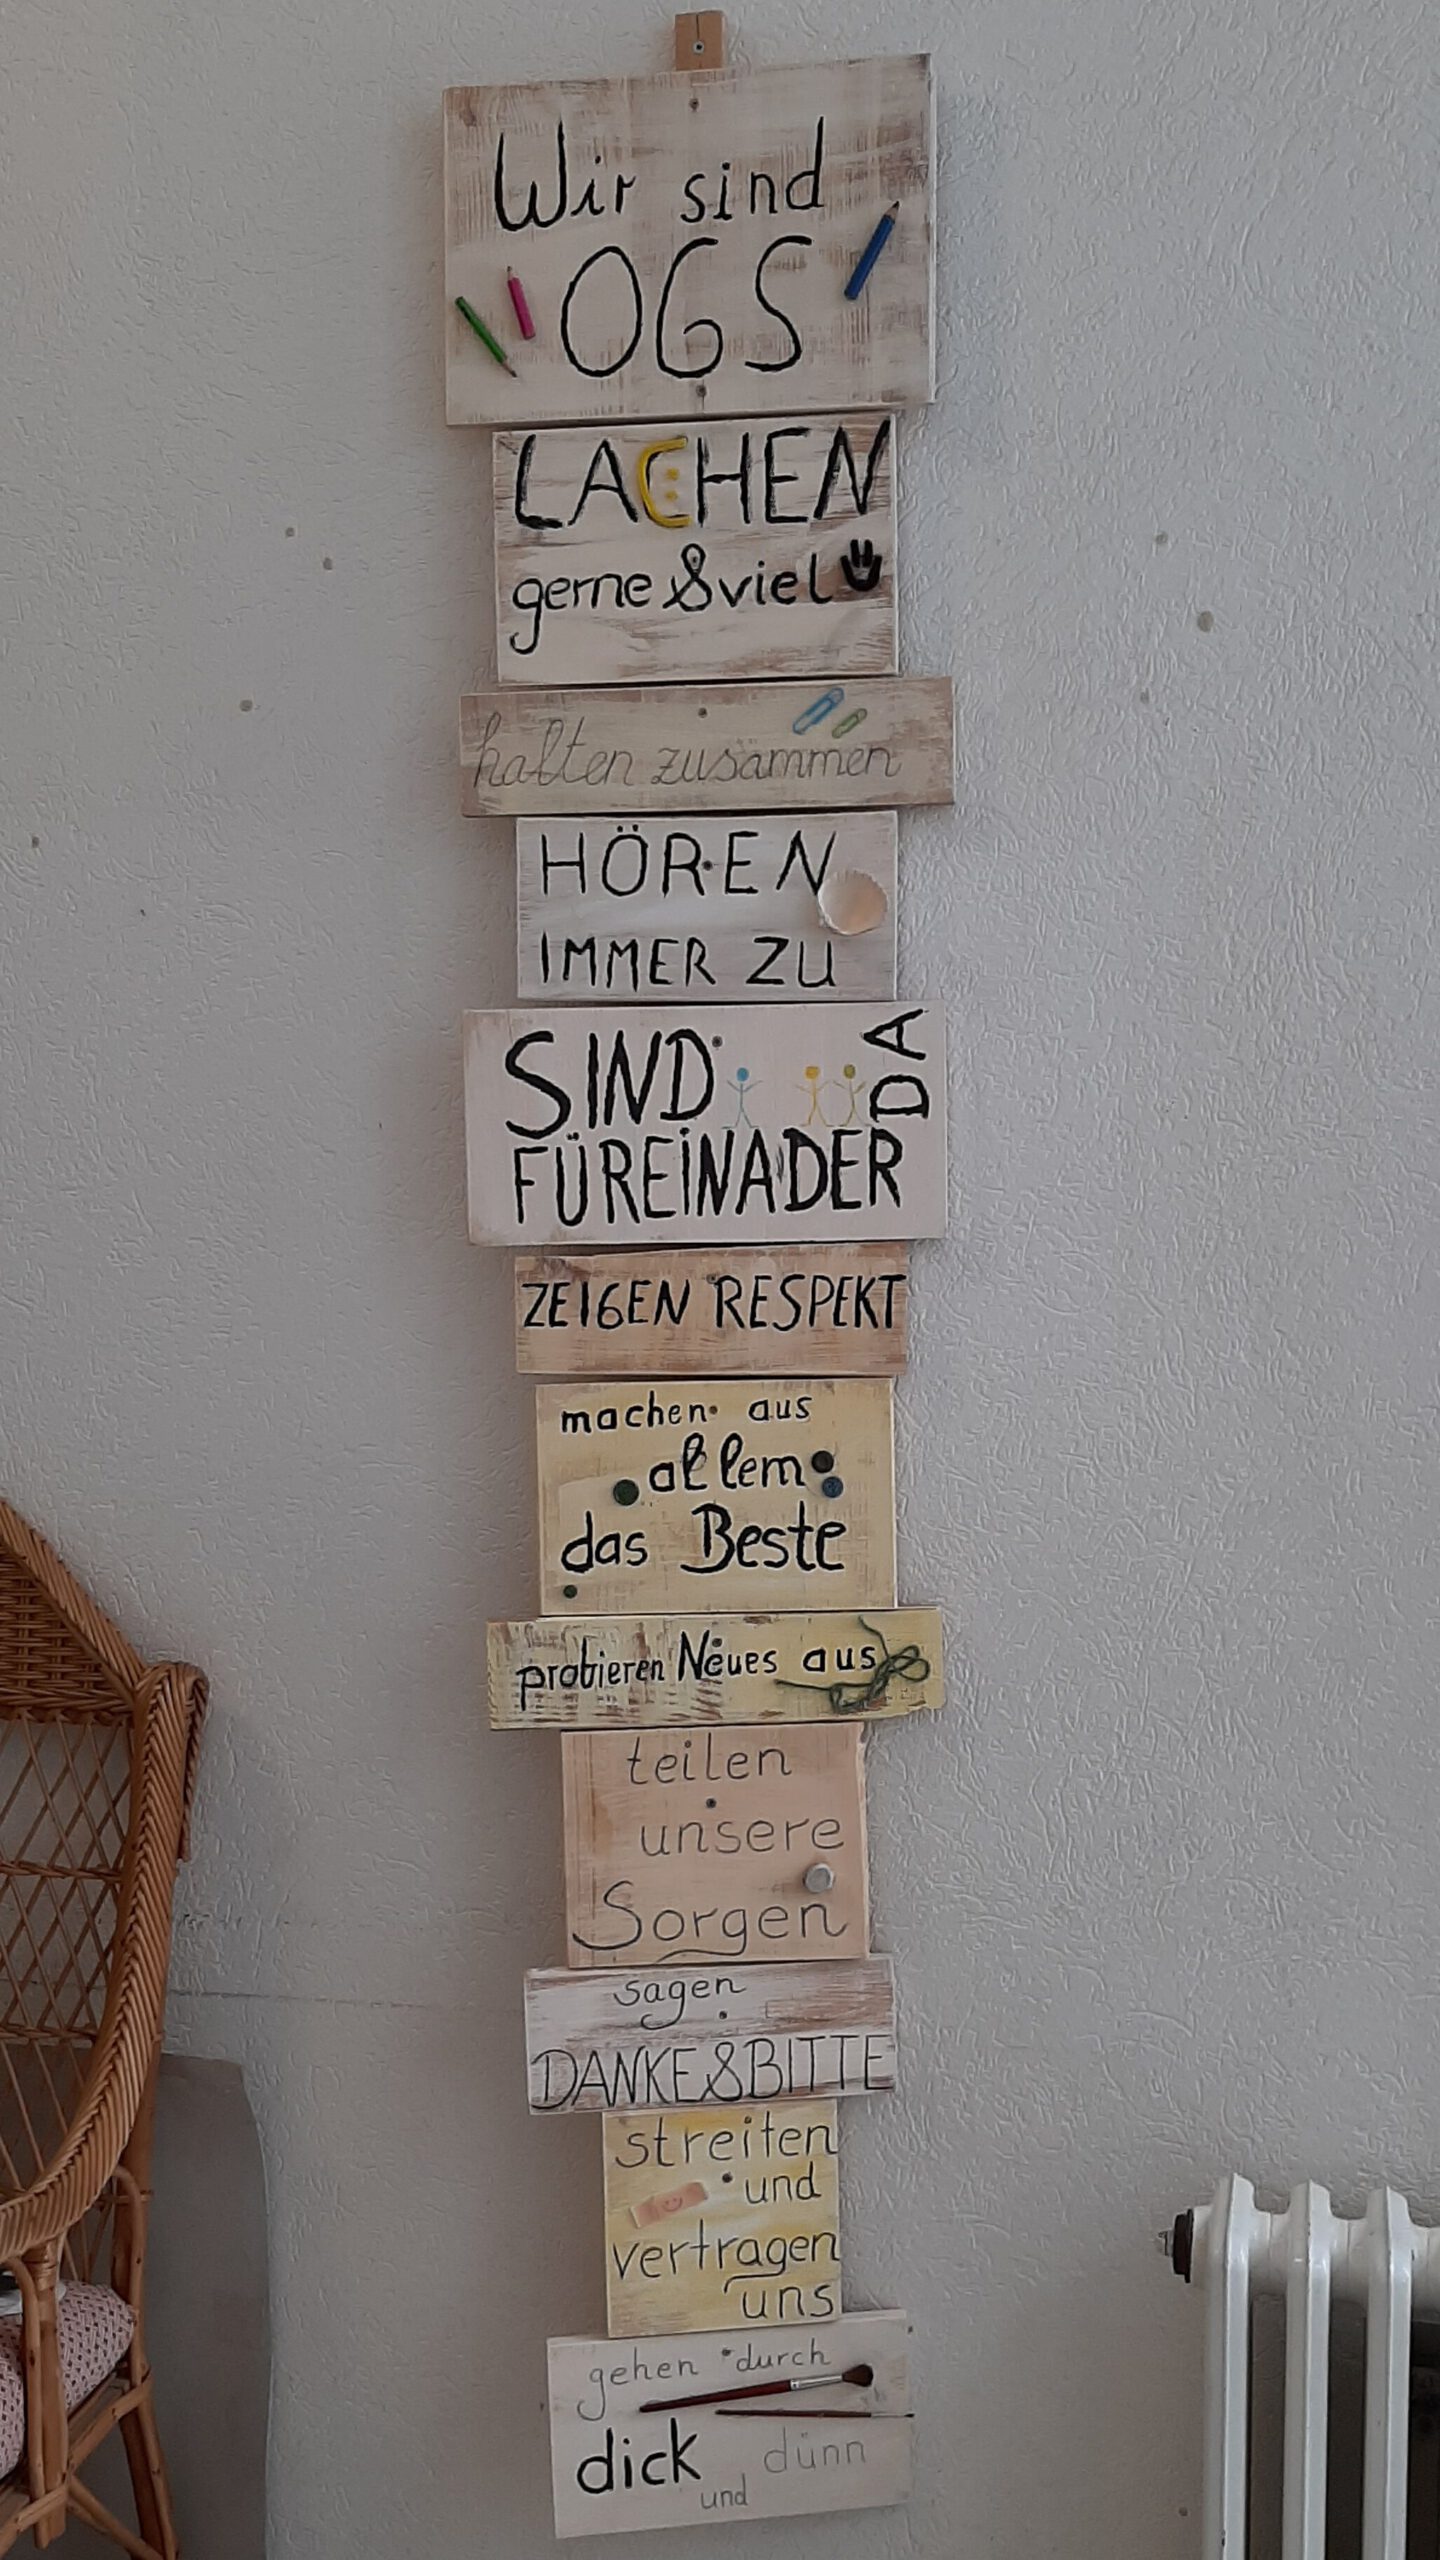 Wir sind
OGS
LACHEN
gerne & viel
halten zusammen
HÖREN
IMMER ZU
SIND
DA
FÜREINADER
ZEIGEN RESPEKT
machen aus
allem
das Beste
probieren Neues aus
teilen
unsere
Sorgen
sagen
DANKE&BITTE
streiten
und
vertragen
uns
gehen durch
dick dünn
und